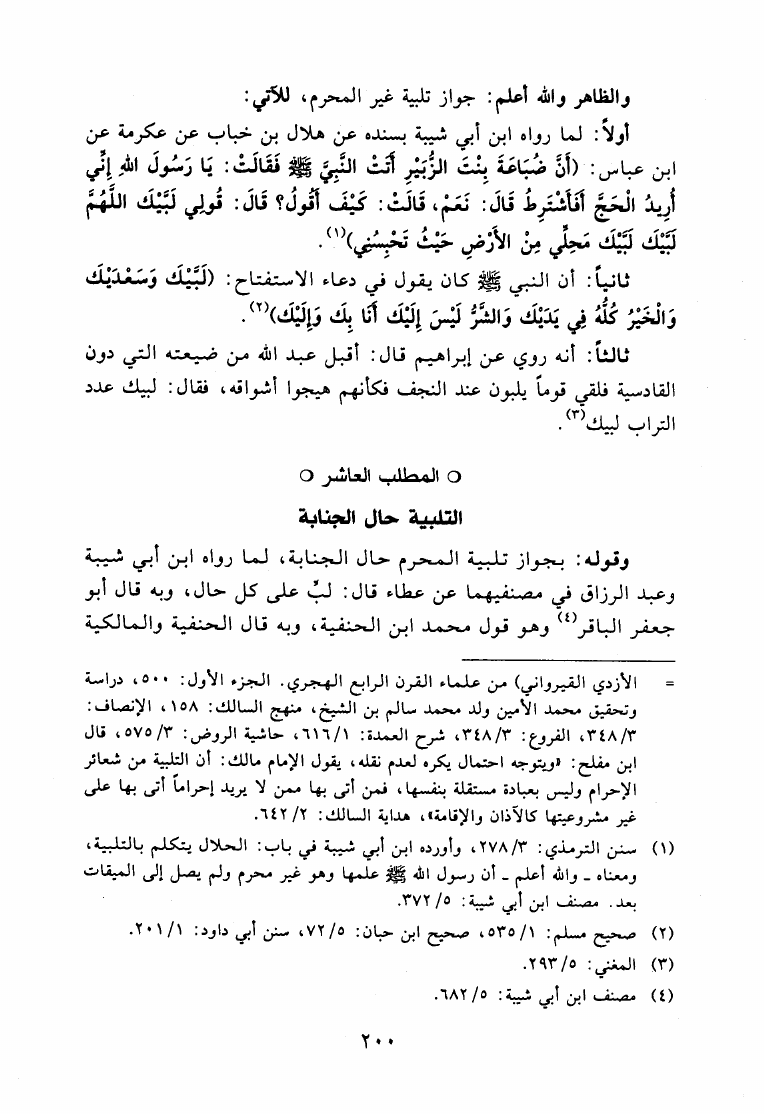 والظاهر والله أعلم: جواز تلبية غير المحرم، للآتي:
أولاً: لما رواه ابن أبي شيبة بسنده عن هلال بن خباب عن عكرمة عن
ابن عباس: (أَنَّ ضُبَاعَةَ بِنْتَ الزُّبَيْرِ أَتَتْ النَّبِيَّ ﷺ فَقَالَتْ: يَا رَسُولَ اللهِ إِنِّي
أُرِيدُ الْحَجَّ أَفَأَشْتَرِطُ قَالَ: نَعَمْ، قَالَتْ: كَيْفَ أَقُولُ؟ قَالَ: قُولِي لَبَّيْكَ اللَّهُمَّ
لَبَّيْكَ لَبَّيْكَ مَحِلِّي مِنْ الأَرْضِ حَيْثُ تَحْبِسُنِي)(١).
ثانياً: أن النبي ﷺ كان يقول في دعاء الاستفتاح: (لَبَّيْكَ وَسَعْدَيْكَ
وَالْخَيْرُ كُلُّهُ فِي يَدَيْكَ وَالشَّرُّ لَيْسَ إِلَيْكَ أَنَا بِكَ وَإِلَيْكَ)(٢).
ثالثاً: أنه روي عن إبراهيم قال: أقبل عبد الله من ضيعته التي دون
القادسية فلقي قوماً يلبون عند النجف فكأنهم هيجوا أشواقه، فقال: لبيك عدد
التراب لبيك(٣).
○ المطلب العاشر ○
التلبية حال الجنابة
وقوله: بجواز تلبية المحرم حال الجنابة، لما رواه ابن أبي شيبة
وعبد الرزاق في مصنفيهما عن عطاء قال: لبِّ على كل حال، وبه قال أبو
جعفر الباقر(٤) وهو قول محمد ابن الحنفية، وبه قال الحنفية والمالكية
= الأزدي القيرواني) من علماء القرن الرابع الهجري. الجزء الأول: ٥٠٠، دراسة
وتحقيق محمد الأمين ولد محمد سالم بن الشيخ، منهج السالك: ١٥٨، الإنصاف:
٣٤٨/٣، الفروع: ٣٤٨/٣، شرح العمدة: ٦١٦/١، حاشية الروض: ٥٧٥/٣، قال
ابن مفلح: «ويتوجه احتمال يكره لعدم نقله، يقول الإمام مالك: أن التلبية من شعائر
الإحرام وليس بعبادة مستقلة بنفسها، فمن أتى بها ممن لا يريد إحراماً أتى بها على
غير مشروعيتها كالآذان والإقامة»، هداية السالك: ٦٤٢/٢.
(١) سنن الترمذي: ٢٧٨/٣، وأورده ابن أبي شيبة في باب: الحلال يتكلم بالتلبية،
ومعناه ـ والله أعلم ـ أن رسول الله ﷺ علمها وهو غير محرم ولم يصل إلى الميقات
بعد. مصنف ابن أبي شيبة: ٣٧٢/٥.
(٢) صحيح مسلم: ٥٣٥/١، صحيح ابن حبان: ٧٢/٥، سنن أبي داود: ٢٠١/١.
(٣) المغني: ٢٩٣/٥.
(٤) مصنف ابن أبي شيبة: ٦٨٢/٥.
٢٠٠